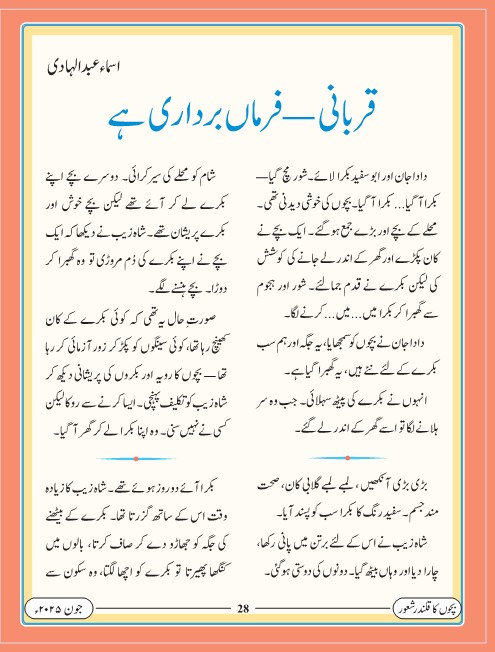 اسماء عبدالہادی
قربانی — فرماں برداری ہے
دادا جان اور ابو سفید بکرا لائے۔ شور مچ گیا —
بکرا آ گیا... بکرا آ گیا۔ بچوں کی خوشی دیدنی تھی۔
محلے کے بچے اور بڑے جمع ہو گئے۔ ایک بچے نے
کان پکڑے اور گھر کے اندر لے جانے کی کوشش
کی لیکن بکرے نے قدم جما لئے۔ شور اور ہجوم
سے گھبرا کر بکرا میں... میں... کرنے لگا۔
دادا جان نے بچوں کو سمجھایا، یہ جگہ اور ہم سب
بکرے کے لئے نئے ہیں، یہ گھبرا گیا ہے۔
انہوں نے بکرے کی پیٹھ سہلائی۔ جب وہ سر
ہلانے لگا تو اسے گھر کے اندر لے گئے۔
بڑی بڑی آنکھیں، لمبے لمبے گلابی کان، صحت
مند جسم۔ سفید رنگ کا بکرا سب کو پسند آیا۔
شاہ زیب نے اس کے لئے برتن میں پانی رکھا،
چارا دیا اور وہاں بیٹھ گیا۔ دونوں کی دوستی ہو گئی۔
شام کو محلے کی سیر کرائی۔ دوسرے بچے اپنے
بکرے لے کر آئے تھے لیکن بچے خوش اور
بکرے پریشان تھے۔ شاہ زیب نے دیکھا کہ ایک
بچے نے اپنے بکرے کی دُم مروڑی تو وہ گھبرا کر
دوڑا۔ بچے ہنسنے لگے۔
صورتِ حال یہ تھی کہ کوئی بکرے کے کان
کھینچ رہا تھا، کوئی سینگوں کو پکڑ کر زور آزمائی کر رہا
تھا — بچوں کا رویہ اور بکروں کی پریشانی دیکھ کر
شاہ زیب کو تکلیف پہنچی۔ ایسا کرنے سے روکا لیکن
کسی نے نہیں سنی۔ وہ اپنا بکرا لے کر گھر آ گیا۔
بکرا آئے دو روز ہوئے تھے۔ شاہ زیب کا زیادہ
وقت اس کے ساتھ گزرتا تھا۔ بکرے کے بیٹھنے
کی جگہ کو جھاڑو دے کر صاف کرتا، بالوں میں
کنگھا پھیرتا تو بکرے کو اچھا لگتا، وہ سکون سے
بچوں کا قلندر شعور
28
جون ۲۰۲۵ء